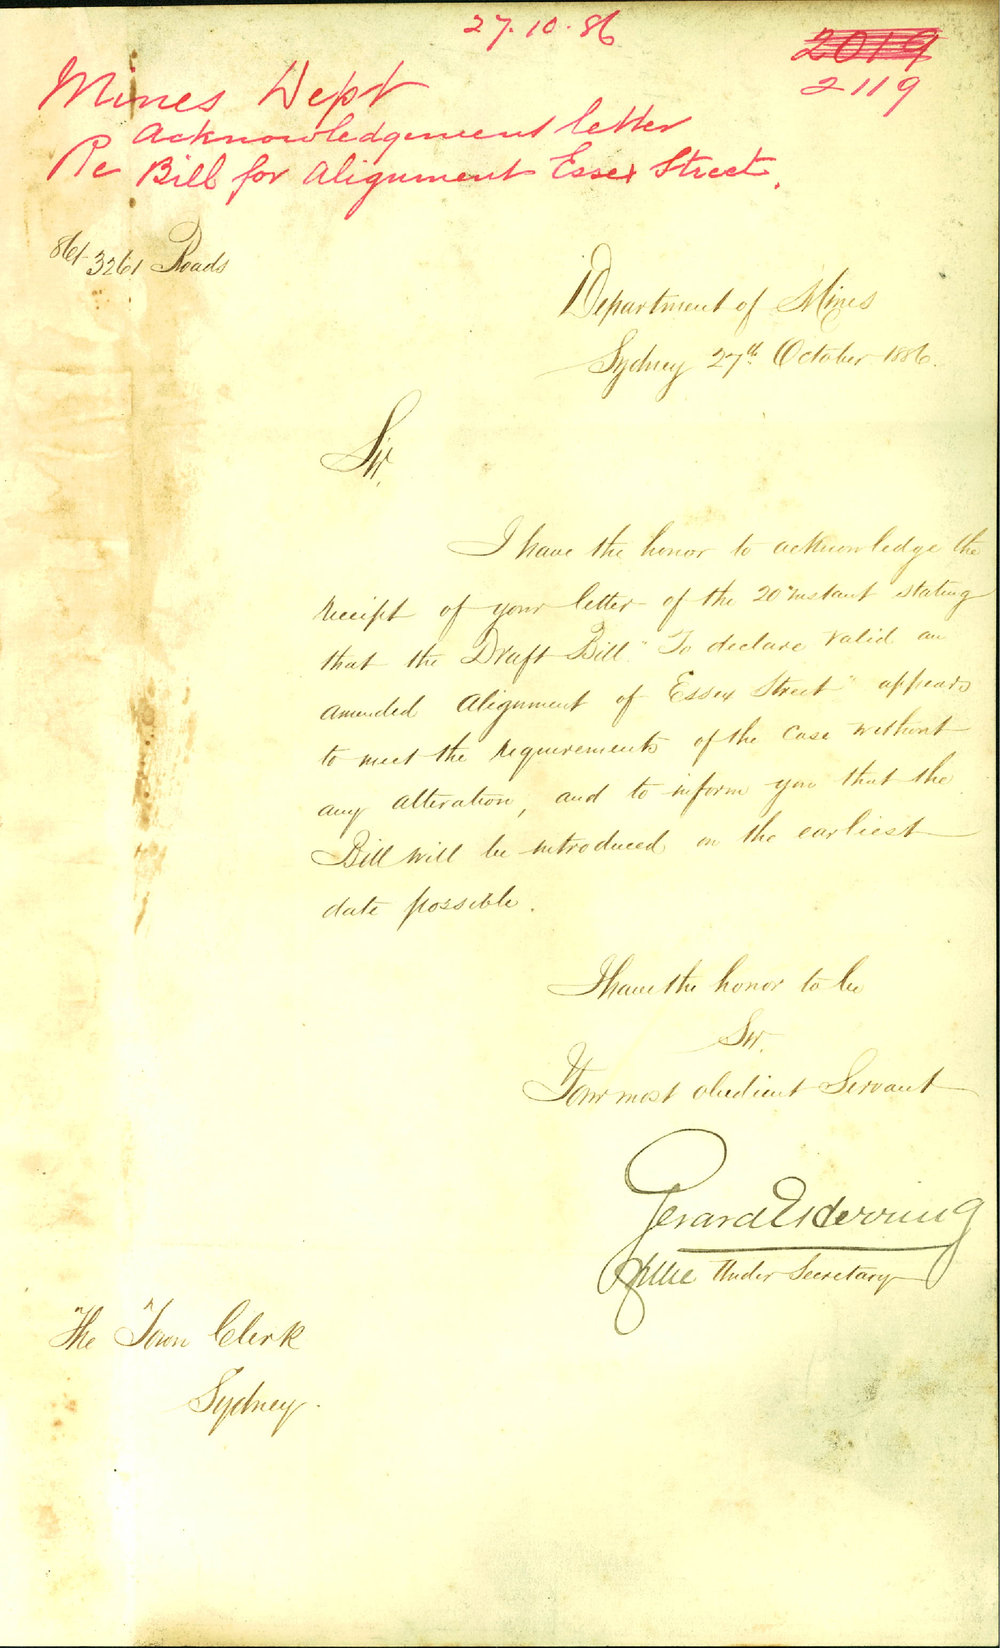 27.10.86
2019
2119
Mines Dept
Acknowledgement letter
Re Bill for Alignment Essex Street.
86/3261 Roads
Department of Mines
Sydney 27th October 1886.
Sir,
I have the honor to acknowledge the
receipt of your letter of the 20th instant stating
that the Draft Bill "To declare valid an
amended Alignment of Essex Street" appears
to meet the requirements of the case without
any alteration, and to inform you that the
Bill will be introduced on the earliest
date possible.
I have the honor to be
Sir,
Your most obedient Servant
Gerard E Herring
Under Secretary
The Town Clerk
Sydney.